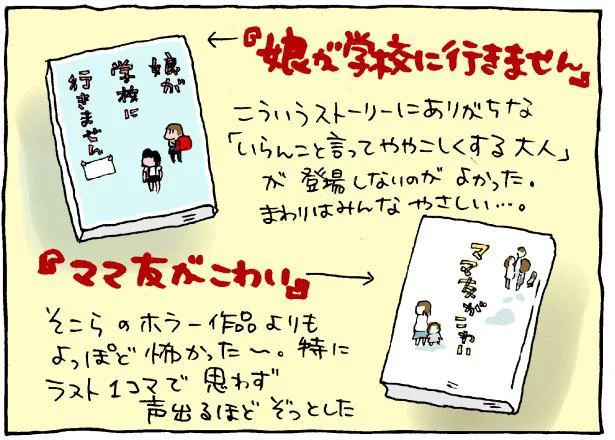 『娘が学校に行きません』
娘が
学校に
行きません
こういうストーリーにありがちな
「いらんこと言ってややこしくする大人」
が登場しないのがよかった。
まわりはみんなやさしい…。
『ママ友がこわい』
ママ友がこわい
そこらのホラー作品よりも
よっぽど怖かった〜。特に
ラスト1コマで思わず
声出るほどぞっとした